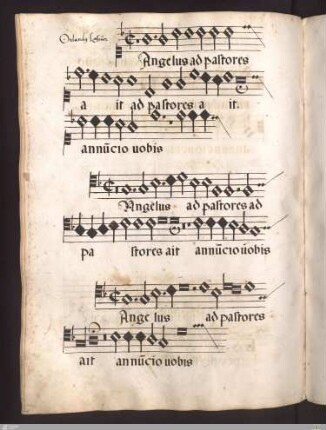 Orlando
Angelus ad pastores
a it ad pastores a it.
annūcio uobis
Angelus ad pastores ad
pa stores ait annūcio uobis
Ange lus ad pastores
ait annūcio uobis